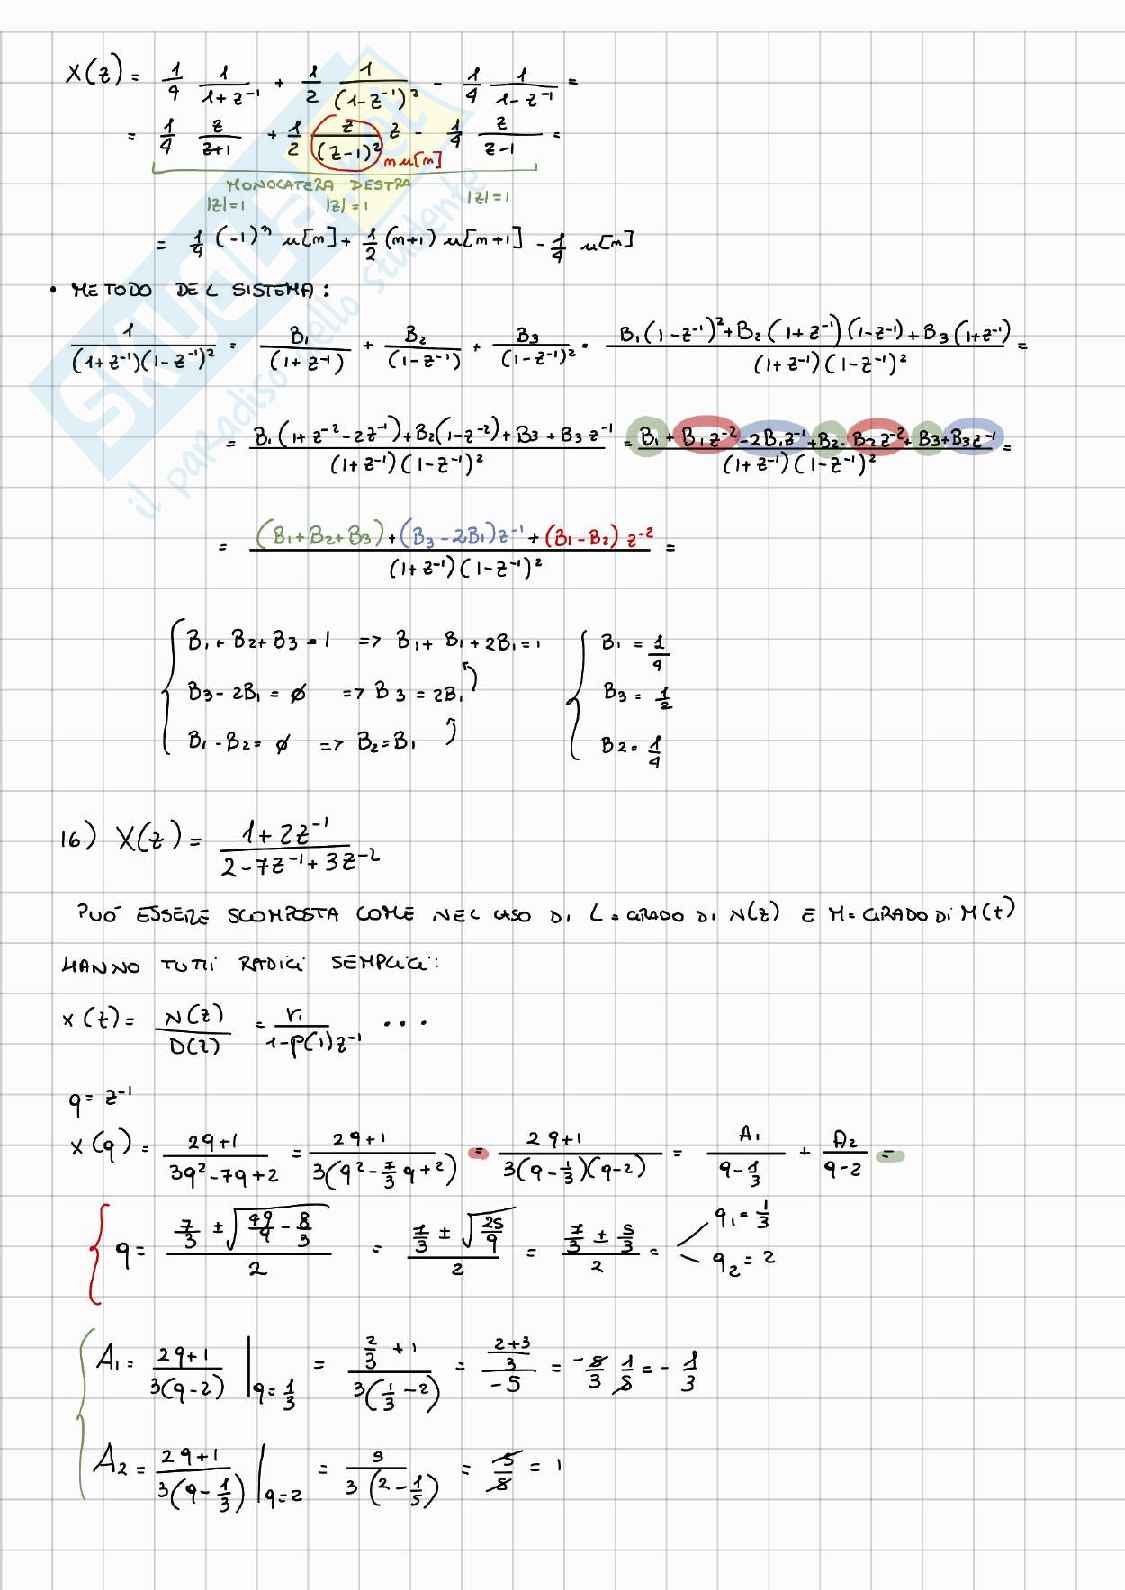 X(z) = 1/4 1/(1+z⁻¹) + 1/2 1/(1-z⁻¹)² - 1/4 1/(1-z⁻¹) =
= 1/4 z/(z+1) + 1/2 z/(z-1)² z - 1/4 z/(z-1) =
m u[m]
MONOCATERA DESTRA
|z|=1 |z|=1 |z|=1
= 1/4 (-1)ⁿ u[m] + 1/2 (m+1) u[m+1] - 1/4 u[m]
• METODO DEL SISTEMA:
1/((1+z⁻¹)(1-z⁻¹)²) = B₁/(1+z⁻¹) + B₂/(1-z⁻¹) + B₃/(1-z⁻¹)² = (B₁(1-z⁻¹)²+B₂(1+z⁻¹)(1-z⁻¹)+B₃(1+z⁻¹))/((1+z⁻¹)(1-z⁻¹)²) =
= (B₁(1+z⁻²-2z⁻¹)+B₂(1-z⁻²)+B₃+B₃z⁻¹)/((1+z⁻¹)(1-z⁻¹)²) = (B₁+B₁z⁻²-2B₁z⁻¹+B₂-B₂z⁻²+B₃+B₃z⁻¹)/((1+z⁻¹)(1-z⁻¹)²) =
= ((B₁+B₂+B₃)+(B₃-2B₁)z⁻¹+(B₁-B₂)z⁻²)/((1+z⁻¹)(1-z⁻¹)²) =
B₁+B₂+B₃=1 => B₁+B₁+2B₁=1 B₁ = 1/4
B₃-2B₁=ø => B₃=2B₁ B₃ = 1/2
B₁-B₂=ø => B₂=B₁ B₂ = 1/4
16) X(z) = (1+2z⁻¹)/(2-7z⁻¹+3z⁻²)
PUÓ ESSERE SCOMPOSTA COME NEL CASO DI L=GRADO DI N(z) E M=GRADO DI M(t)
HANNO TUTTI RADICI SEMPLICI:
x(t) = N(z)/D(z) = r₁/(1-p(1)z⁻¹) ...
q = z⁻¹
x(q) = (2q+1)/(3q²-7q+2) = (2q+1)/(3(q²-7/3 q+2)) = (2q+1)/(3(q-1/3)(q-2)) = A₁/(q-1/3) + A₂/(q-2) =
q = (7/3 ± √(49/9 - 8/3))/2 = (7/3 ± √(25/9))/2 = (7/3 ± 5/3)/2 = q₁=1/3 q₂=2
A₁ = (2q+1)/(3(q-2)) |q=1/3 = (2/3+1)/(3(1/3-2)) = ((2+3)/3)/(-5) = -5/3 1/5 = -1/3
A₂ = (2q+1)/(3(q-1/3)) |q=2 = 5/(3(2-1/3)) = 5/5 = 1
SKUOLA.net
il paradiso dello studente